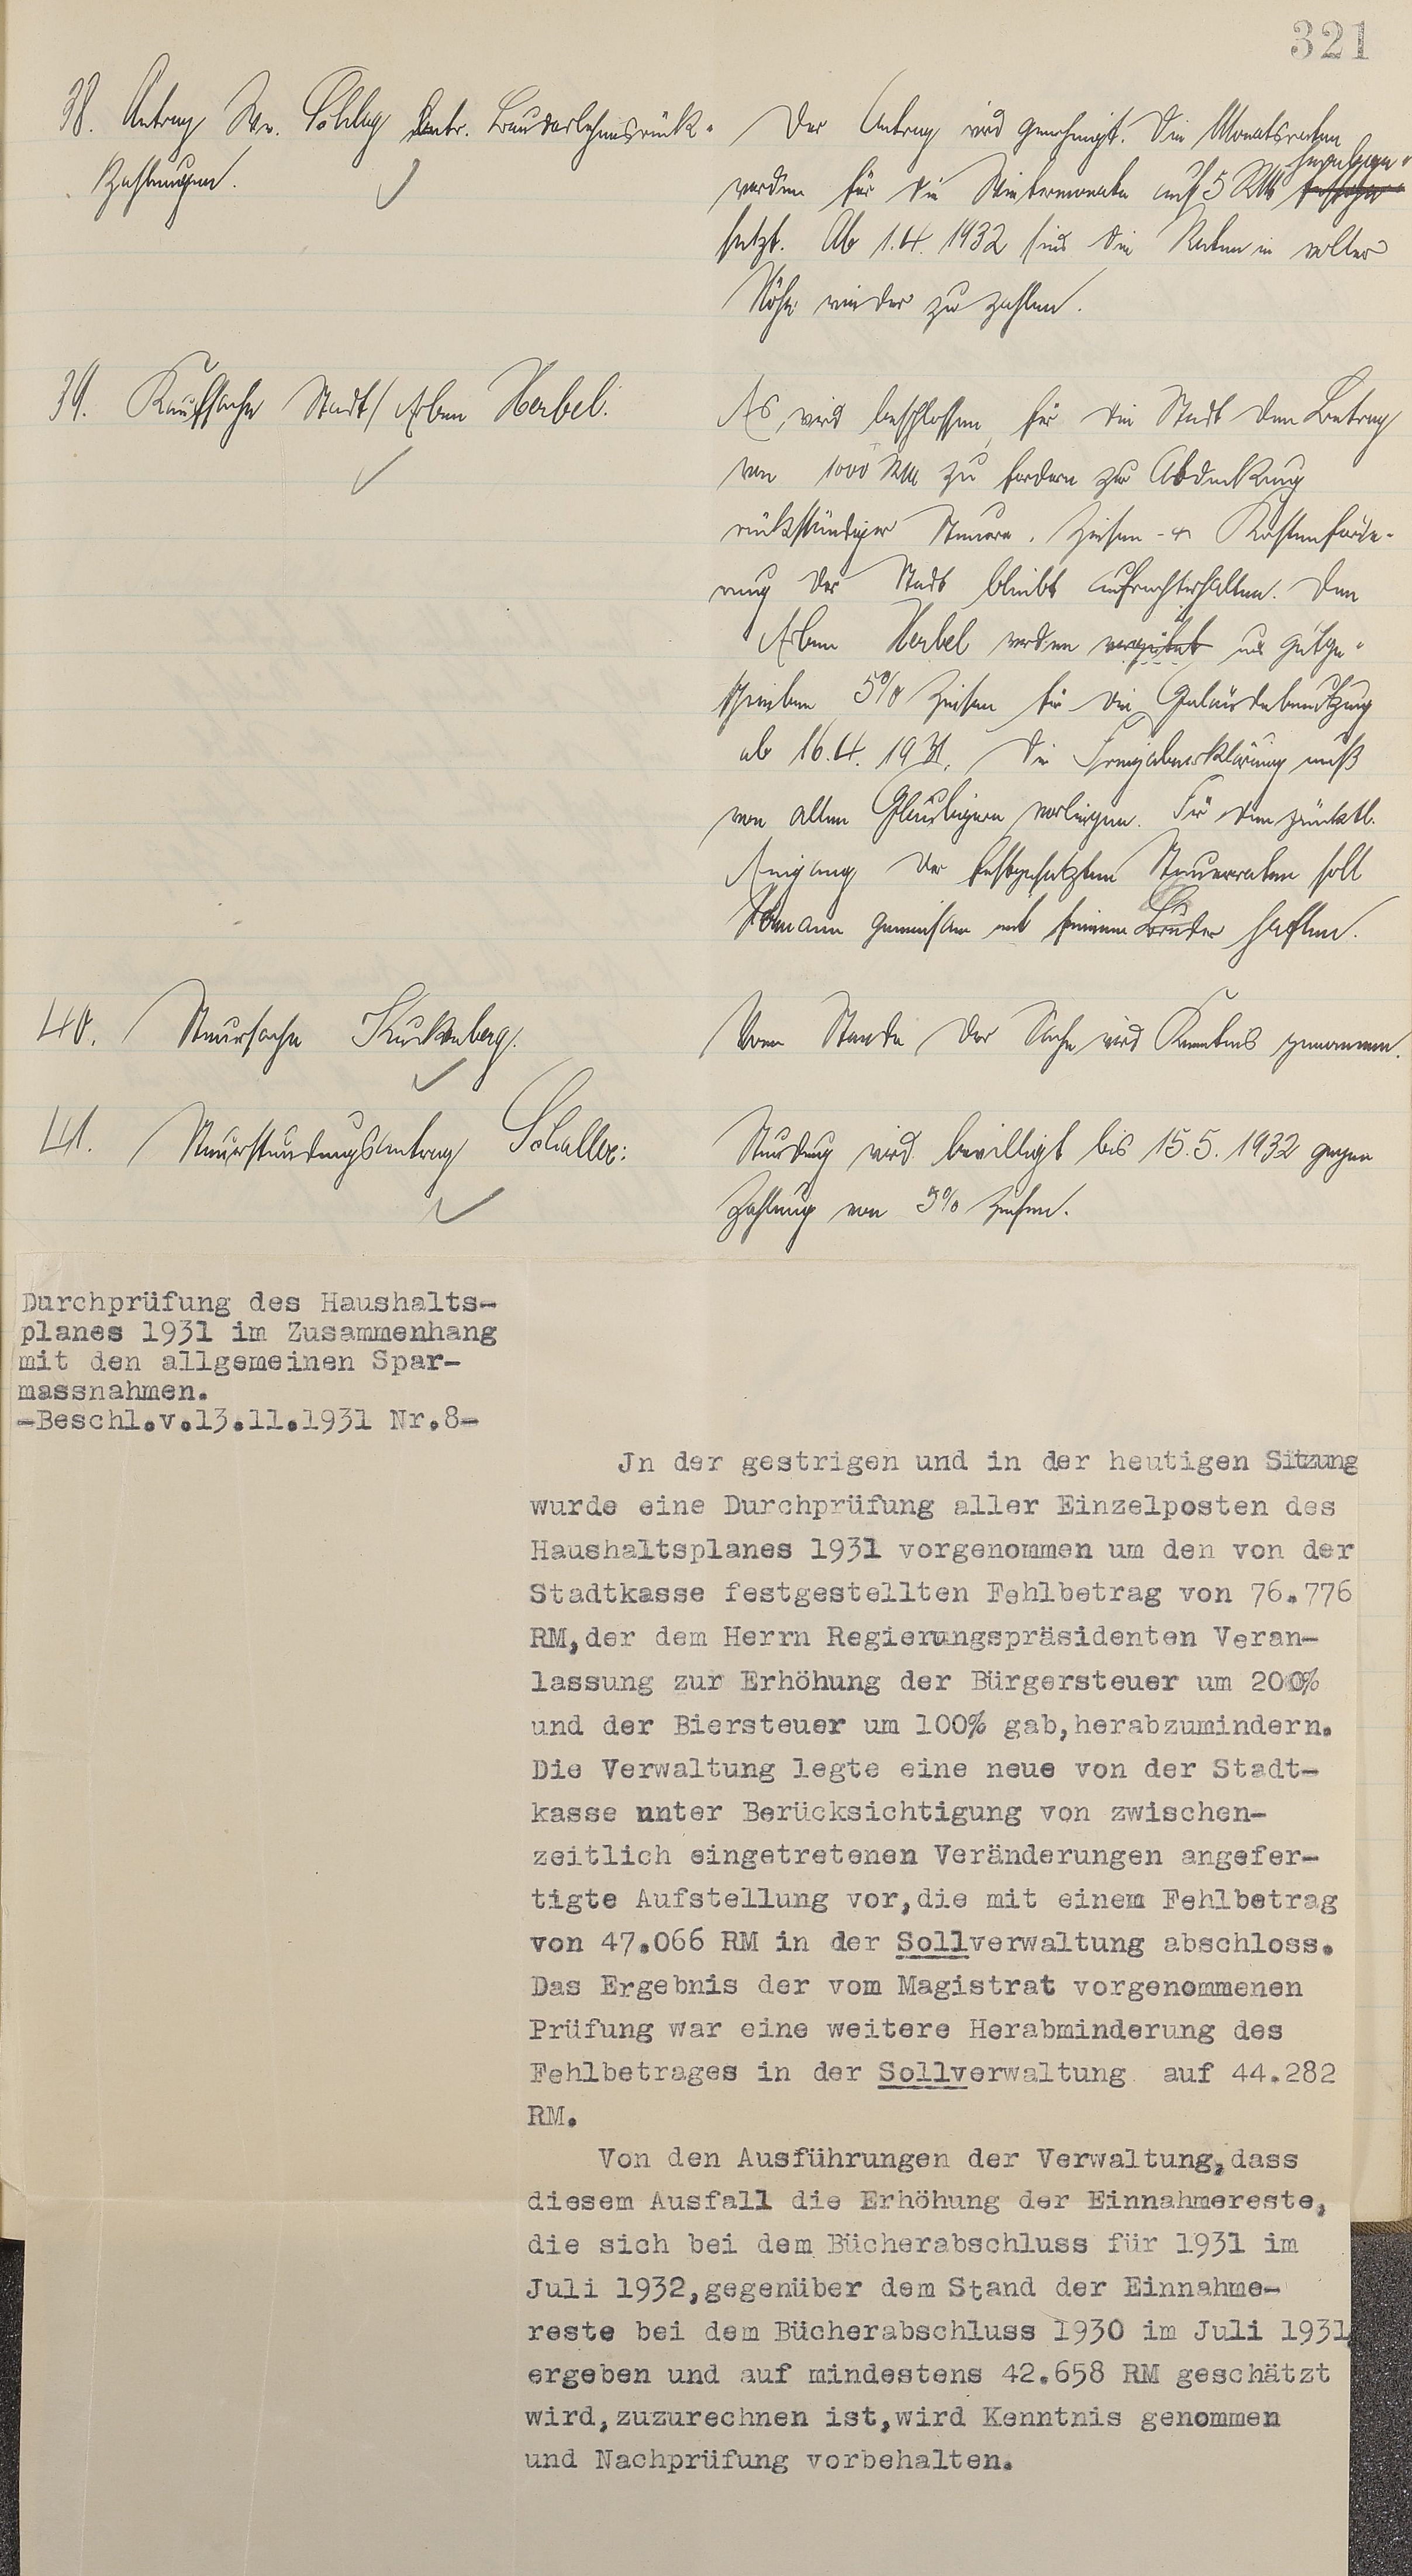 321
38. Antrag Ww. Schlag betr. Baudarlehnsrück-
zahlungen.
Der Antrag wird genehmigt. Die Monatsraten
werden für die Wintermonate auf 5 RM herabge-
setzt. Ab 1.4.1932 sind die Raten in voller
Höhe wieder zu zahlen.
39. Kaufsache Stadt/Erben Herbel.
Es wird beschlossen, für die Stadt den Betrag
von 1000 RM zu fordern zur Abdeckung
rückständiger Steuern. Zinsen- & Kostenforde-
rung der Stadt bleibt aufrechterhalten. Den
Erben Herbel werden vergütet gutge-
schrieben 5% Zinsen für die Geländebenutzung
ab 16.4.1931. Die Freigabeerklärung muß
von allen Gläubigern vorliegen. Für den pünktl.
Eingang der festgesetzten Steuerraten soll
gemeinsam mit seinem Bruder haften.
40. Steuersache Kurkenberg.
Vom Stande der Sache wird Kenntnis genommen.
41. Steuerstundungsantrag Schaller:
Stundung wird bewilligt bis 15.5.1932 gegen
Zahlung von 5% Zinsen.
Durchprüfung des Haushalts-
planes 1931 im Zusammenhang
mit den allgemeinen Spar-
massnahmen.
-Beschl.v.13.11.1931 Nr.8-
Jn der gestrigen und in der heutigen Sitzung
wurde eine Durchprüfung aller Einzelposten des
Haushaltsplanes 1931 vorgenommen um den von der
Stadtkasse festgestellten Fehlbetrag von 76.776
RM,der dem Herrn Regierungspräsidenten Veran-
lassung zur Erhöhung der Bürgersteuer um 200%
und der Biersteuer um 100% gab,herabzumindern.
Die Verwaltung legte eine neue von der Stadt-
kasse unter Berücksichtigung von zwischen-
zeitlich eingetretenen Veränderungen angefer-
tigte Aufstellung vor,die mit einem Fehlbetrag
von 47.066 RM in der Sollverwaltung abschloss.
Das Ergebnis der vom Magistrat vorgenommenen
Prüfung war eine weitere Herabminderung des
Fehlbetrages in der Sollverwaltung auf 44.282
RM.
Von den Ausführungen der Verwaltung,dass
diesem Ausfall die Erhöhung der Einnahmereste,
die sich bei dem Bücherabschluss für 1931 im
Juli 1932,gegenüber dem Stand der Einnahme-
reste bei dem Bücherabschluss 1930 im Juli 1931
ergeben und auf mindestens 42.658 RM geschätzt
wird,zuzurechnen ist,wird Kenntnis genommen
und Nachprüfung vorbehalten.